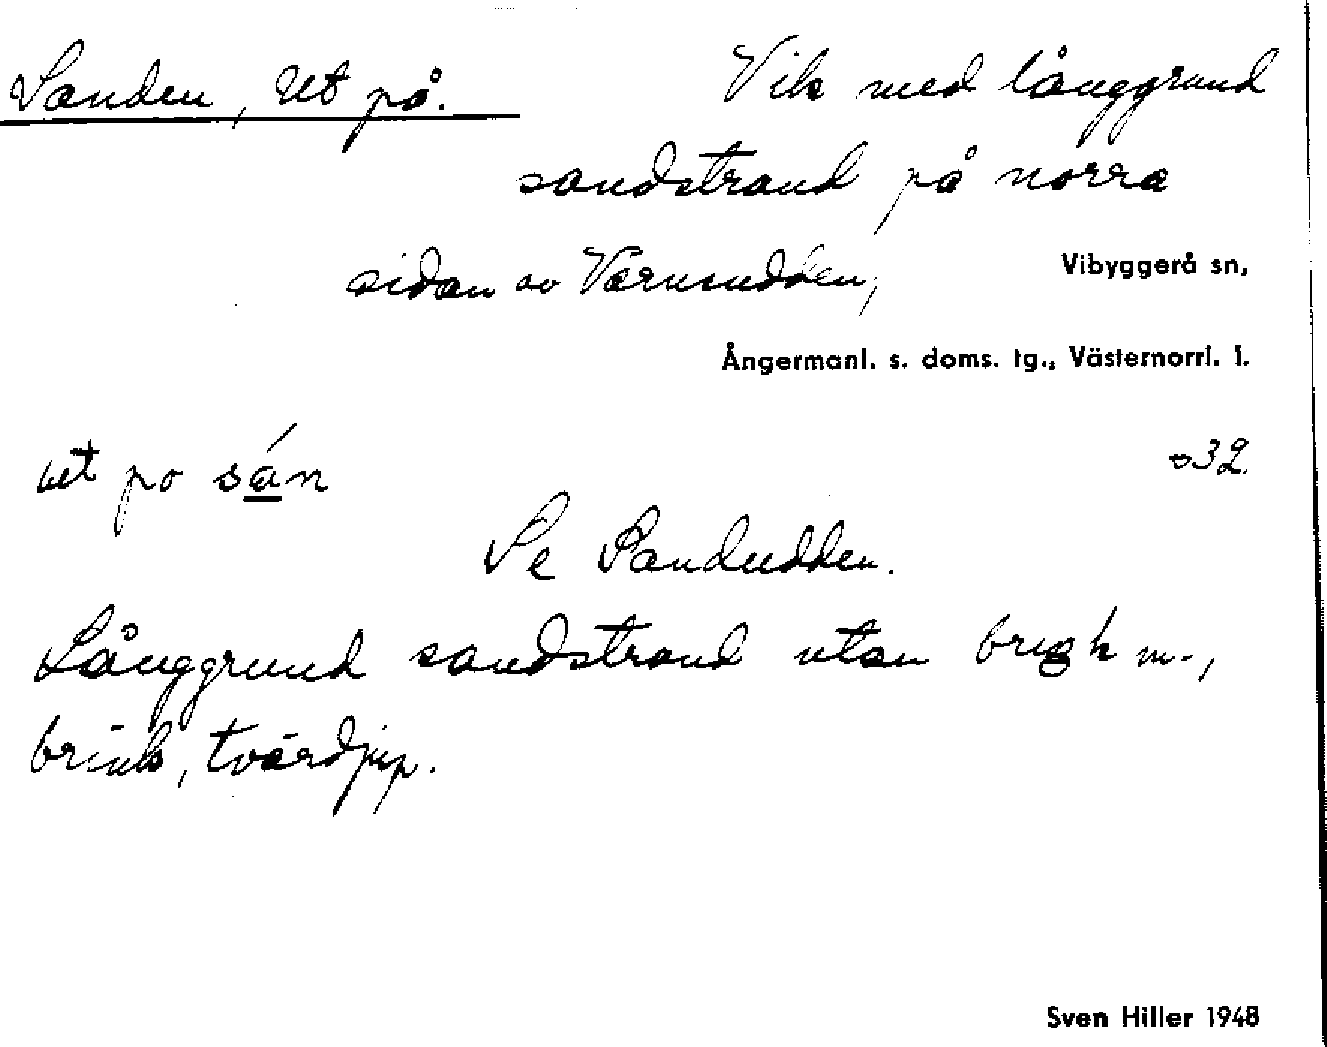 Sanden, Ut på.
Vik med långgrund
sandstrand på norra
sidan av Värnsudden,
Vibyggerå sn,
Ångermanl. s. doms. tg., Västernorrl. l.
ut po sán
032
Se Sandudden.
Långgrund sandstrand utan m.,
brink, tvärdjup.
Sven Hiller 1948